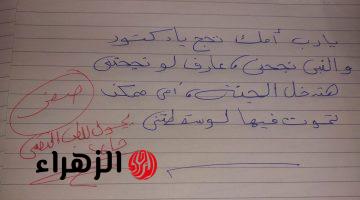 يارب أمك نجح يا دكتور
والنبي نجحني، عارف لو نجحتني
هتدخل الجنة، أمي ممكن
تموت فيها لو سقطتني
صفر
يحول للطب النفسي
الزهراء